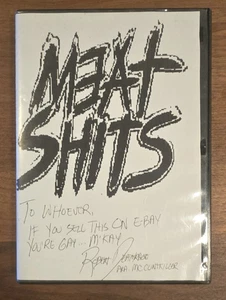 MEAT
SHITS
TO WHOEVER,
IF YOU SELL THIS ON E-BAY
YOU'RE GAY... M'KAY
AKA. MC CUNTKILLER